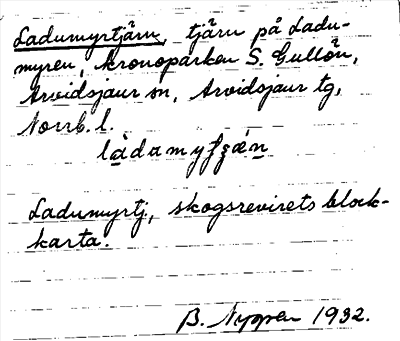 Ladumyrtjärn, tjärn på Ladu-
myren, kronoparken S. Gullön,
Arvidsjaur sn, Arvidsjaur tg,
Norrb. l.
làdamyʈʂǽn
Ladumyrtj, skogsrevirets block-
karta.
B. Nygren 1932.